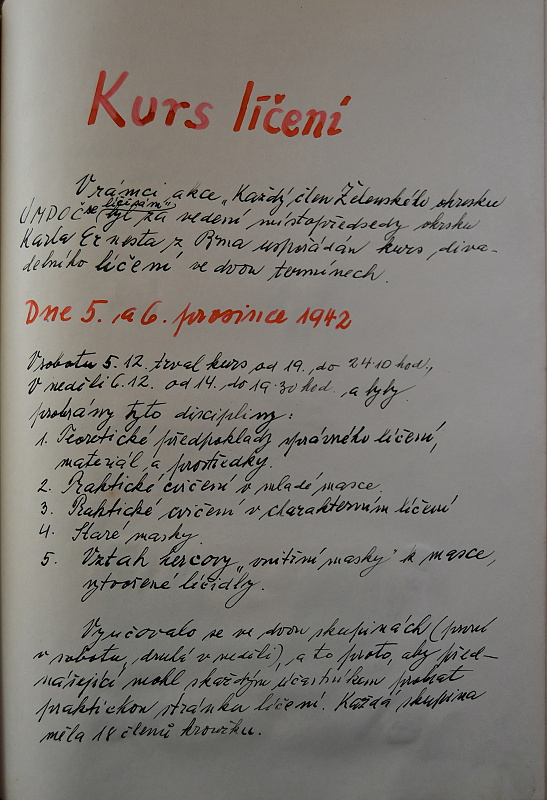 Kurs líčení
V rámci akce „Každý člen Želevského okrsku
ÚMDOČ se líčí sám" byl za vedení místopředsedy okrsku
Karla Ernesta z Brna uspořádán kurs diva-
delního líčení ve dvou termínech.
Dne 5. a 6. prosince 1942
V sobotu 5.12. trval kurs od 19. do 24.10 hod.,
v neděli 6.12. od 14. do 19.30 hod. a byly
probrány tyto disciplíny:
1. Teoretické předpoklady správného líčení,
materiál a prostředky.
2. Praktické cvičení v mladé masce.
3. Praktické cvičení v charakterním líčení
4. Staré masky.
5. Vztah hercovy „vnitřní masky" k masce,
vytvořené líčidly.
Vyučovalo se ve dvou skupinách (první
v sobotu, druhá v neděli), a to proto, aby před-
nášející mohl s každým účastníkem probrat
praktickou stránku líčení. Každá skupina
měla 18 členů kroužku.